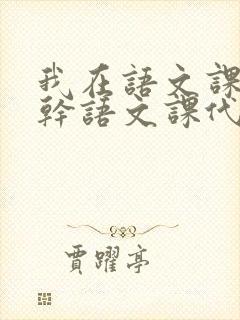 我在語文課
幹語文課代
賈躍亭